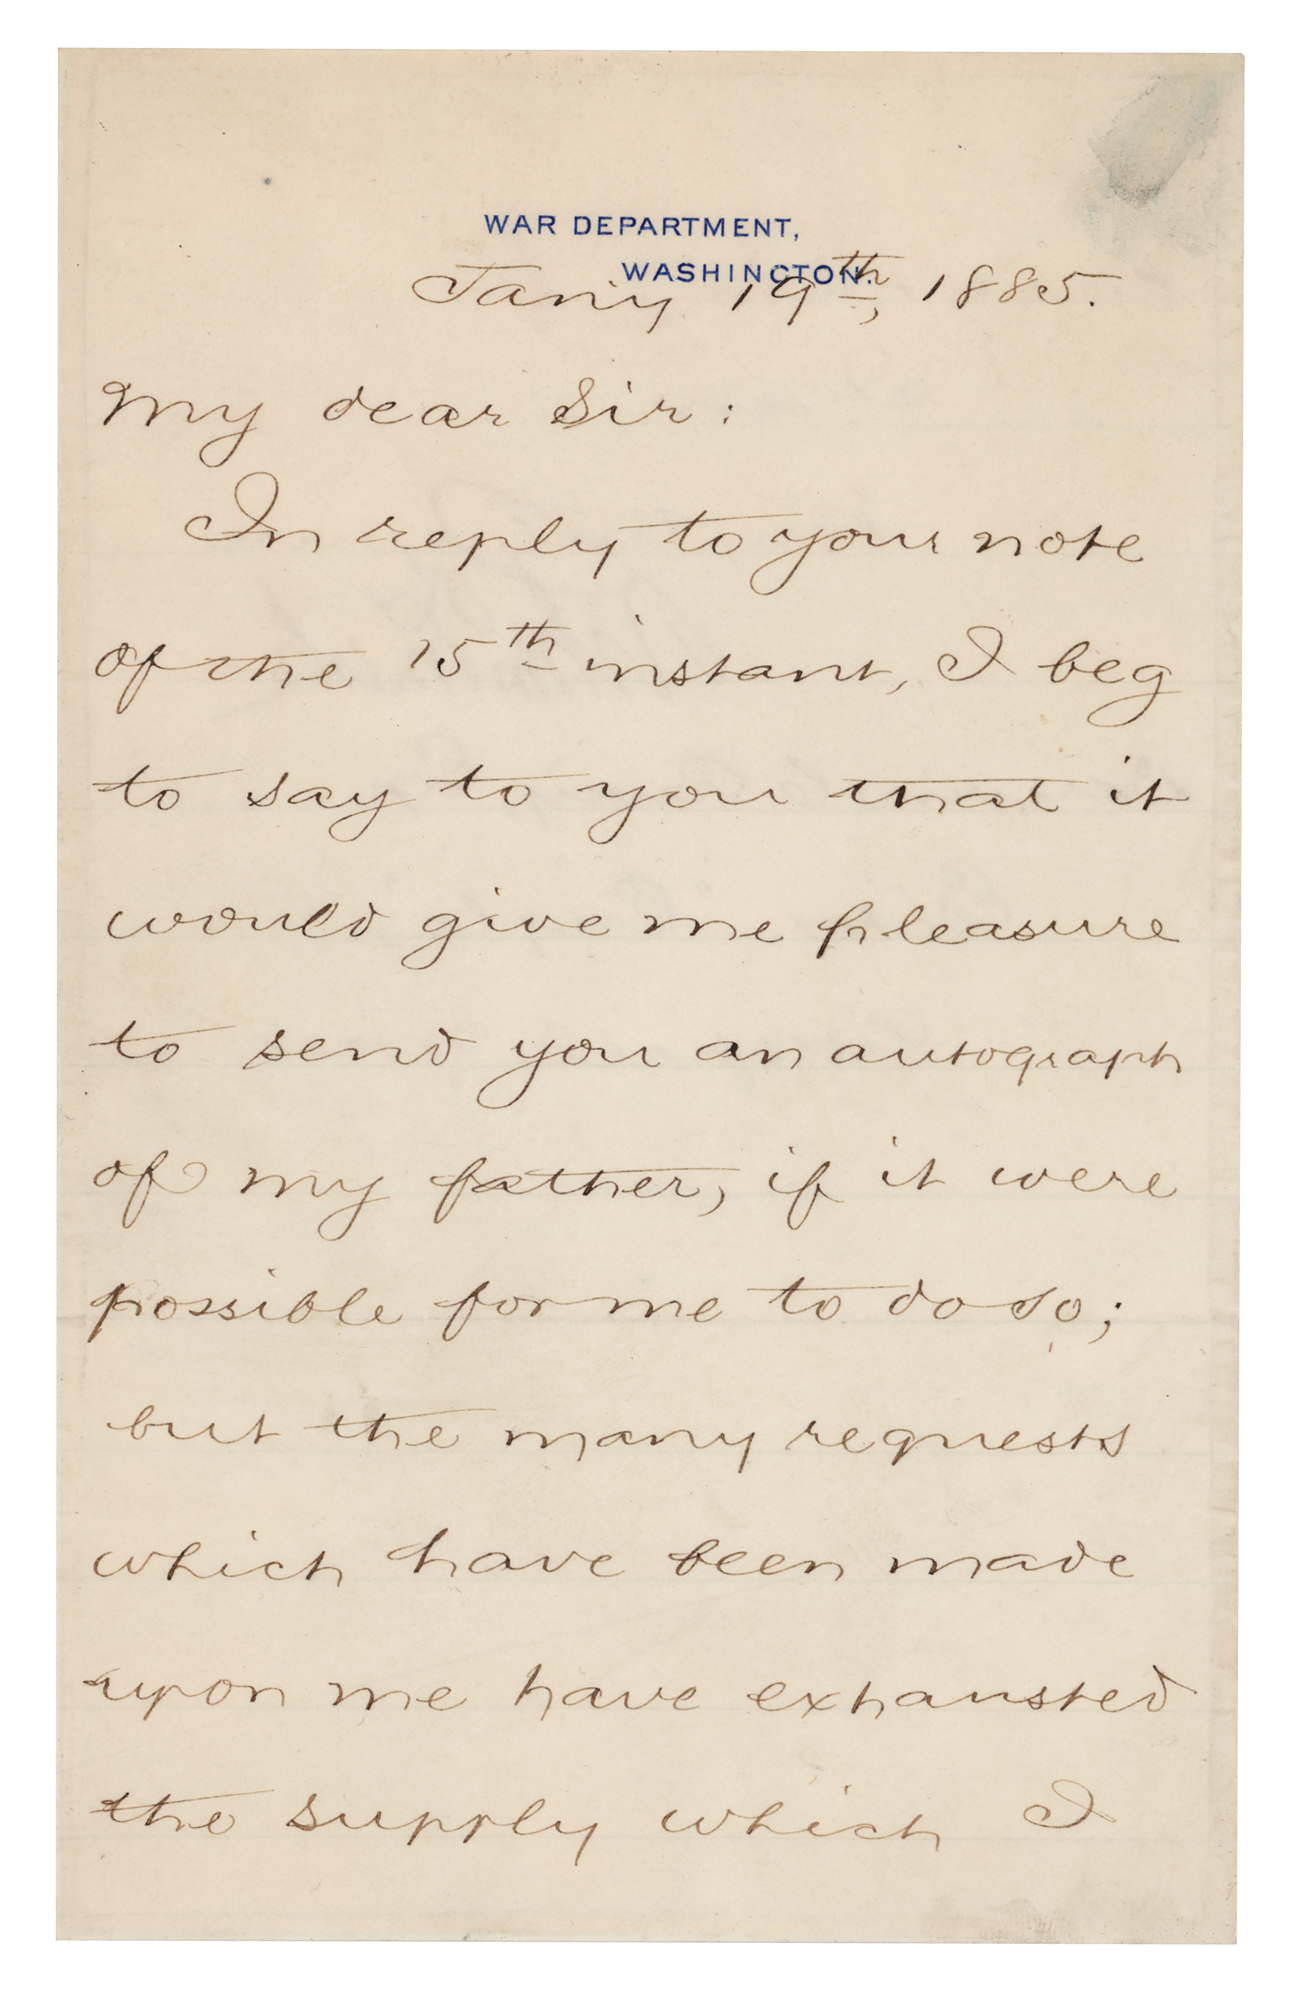 WAR DEPARTMENT,
WASHINGTON.
Jan'y 19th, 1885.
My dear Sir:
In reply to your note
of the 15th instant, I beg
to say to you that it
would give me pleasure
to send you an autograph
of my father, if it were
possible for me to do so;
but the many requests
which have been made
upon me have exhausted
the supply which I